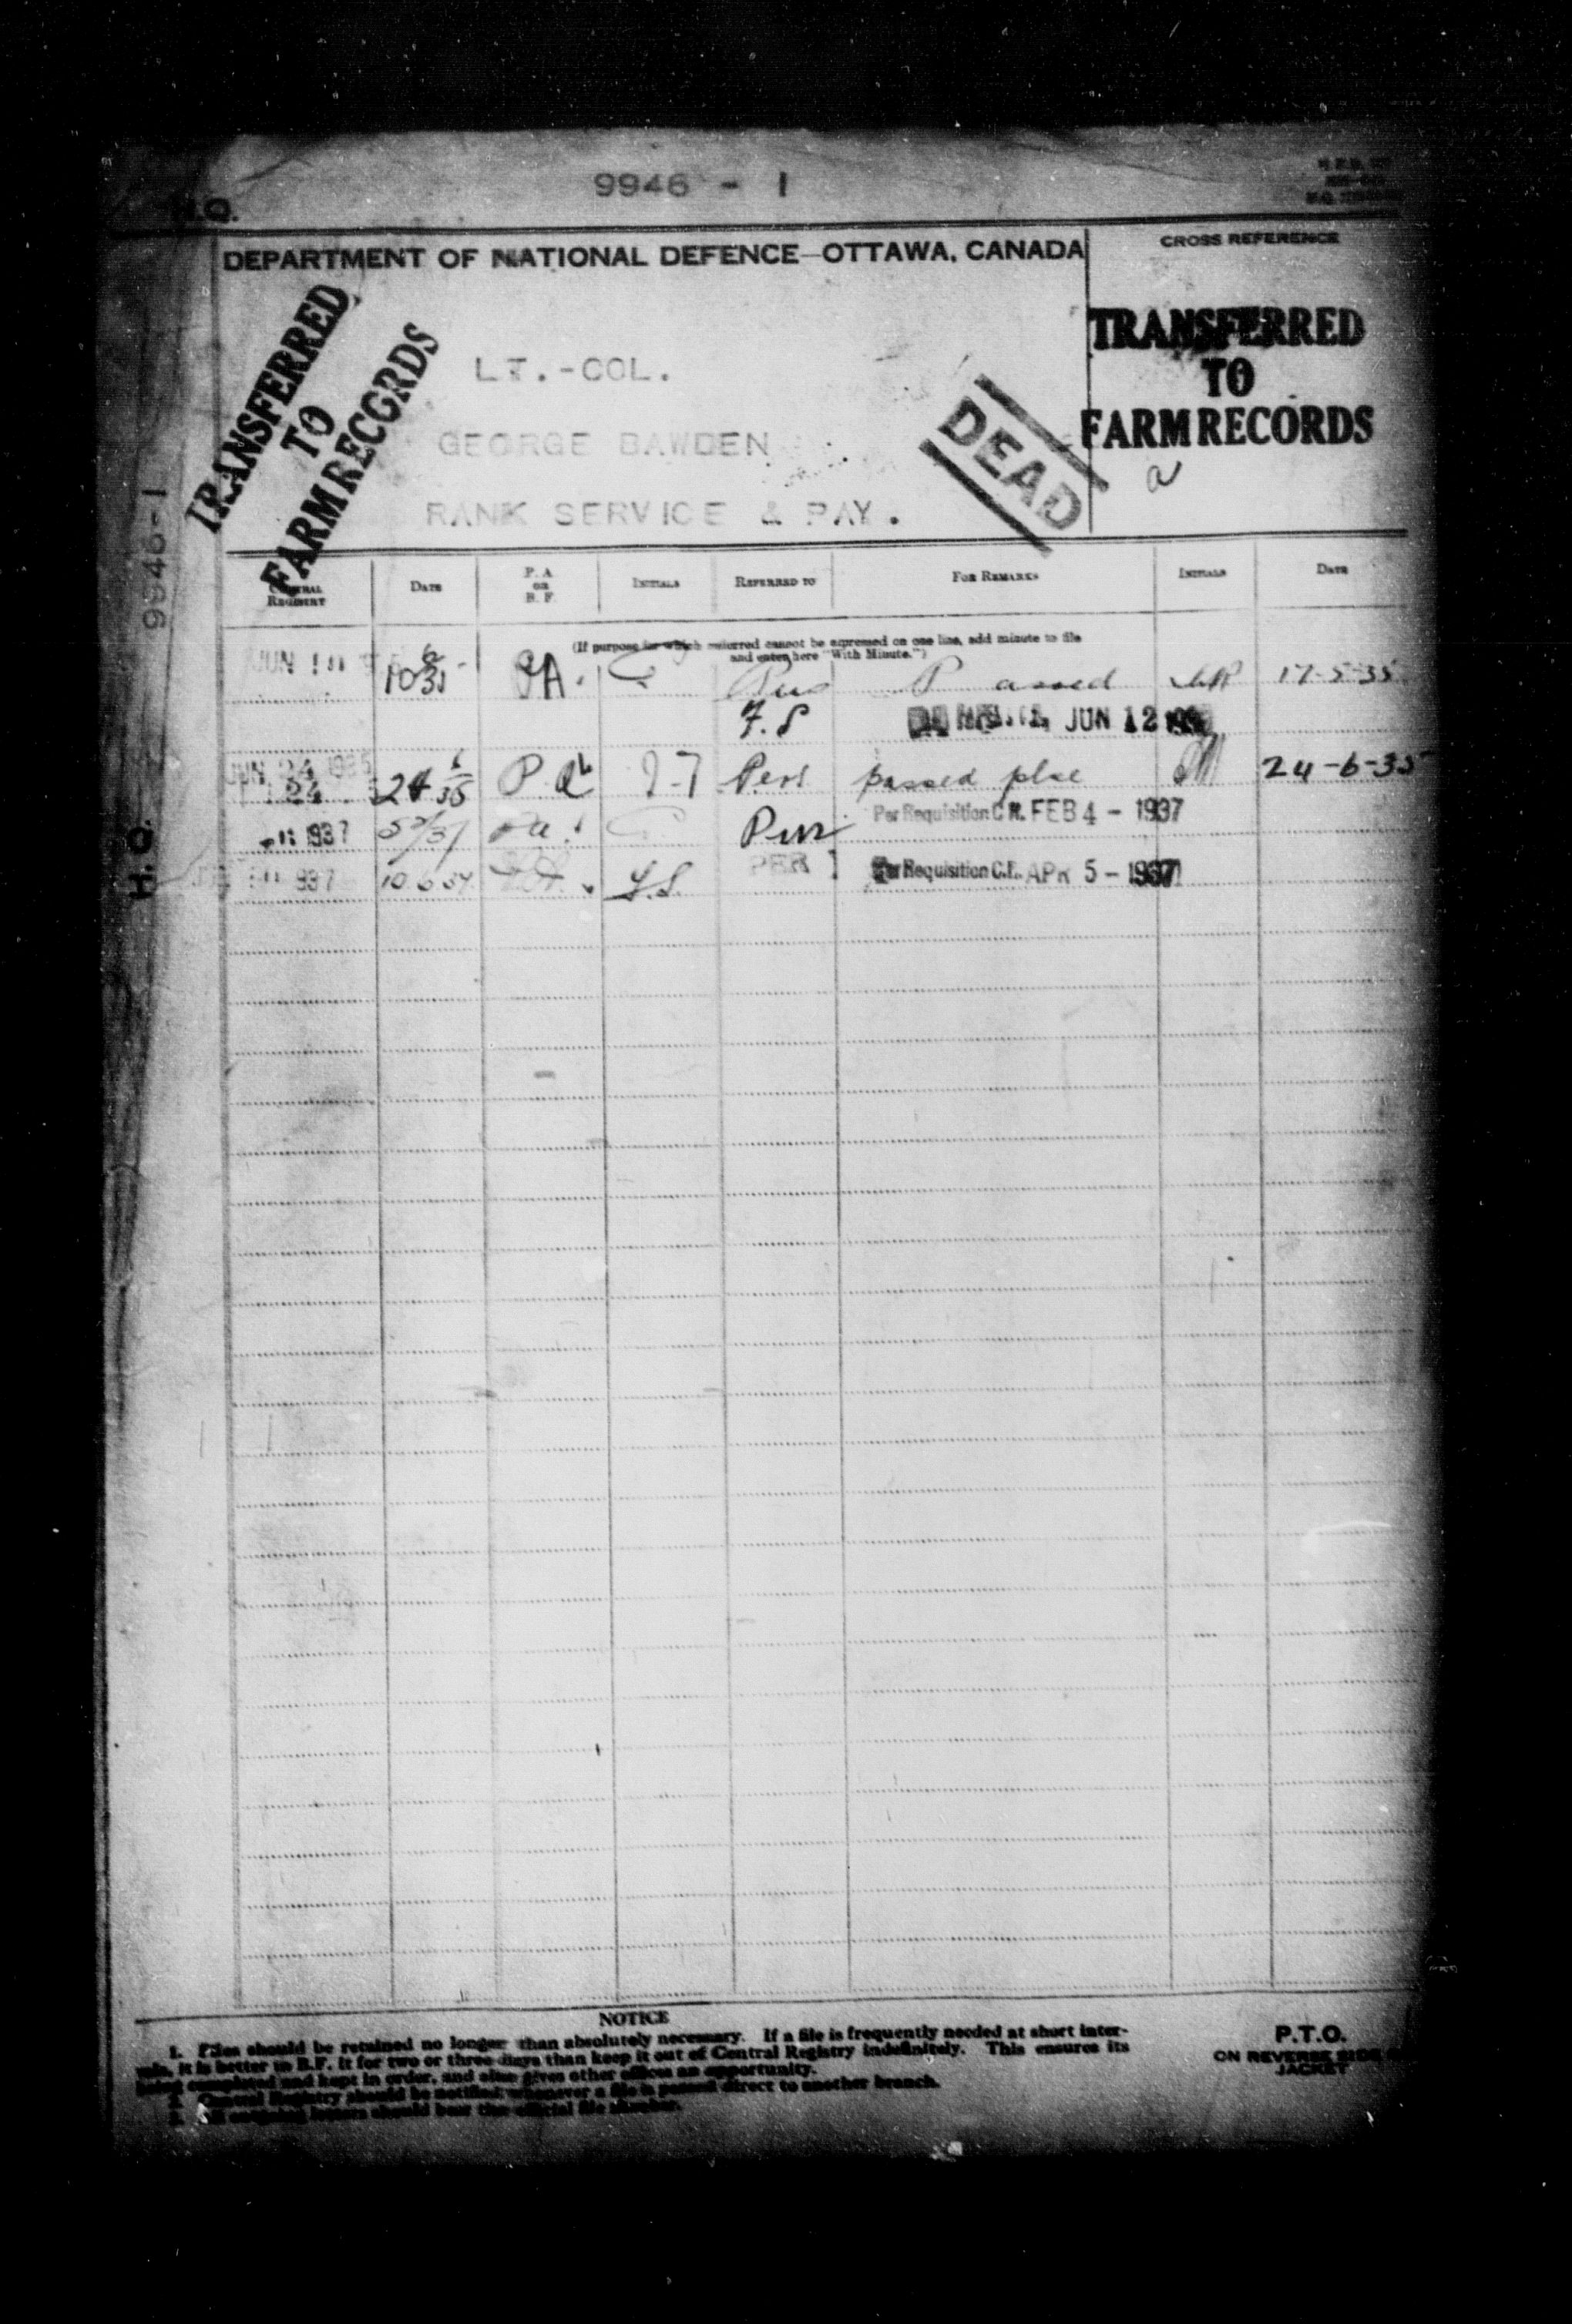 9946 - 1
H.Q.
DEPARTMENT OF NATIONAL DEFENCE—OTTAWA, CANADA
CROSS REFERENCE
TRANSFERRED
TO
FARM RECORDS
TRANSFERRED
TO
FARM RECORDS
LT.-COL.
GEORGE BAWDEN
RANK SERVICE & PAY.
DEAD
9946-1
CENTRAL REGISTRY DATE P. A. OR B. F. INITIALS REFERRED TO FOR REMARKS INITIALS DATE
(If purpose for which referred cannot be expressed on one line, add minute to file
and enter here "With Minute.")
JUN 10 10 6/35 P.A. Passed 17-5-35
F.S JUN 12
JUN 24 1935 24 6/35 P.A. Pers passed plse 24-6-35
1937 5 2/37 Pers Per Requisition C.R. FEB 4 - 1937
937 10 6 37 PER 1 Per Requisition C.R. APR 5 - 1937
H.Q.
NOTICE
1. Files should be retained no longer than absolutely necessary. If a file is frequently needed at short inter-
vals, it is better to B.F. it for two or three days than keep it out of Central Registry indefinitely. This ensures its
being completed and kept in order, and also gives other offices an opportunity.
2. Central Registry should be notified whenever a file is passed direct to another branch.
3. All outgoing letters should bear the official file number.
P.T.O.
ON REVERSE SIDE OF
JACKET